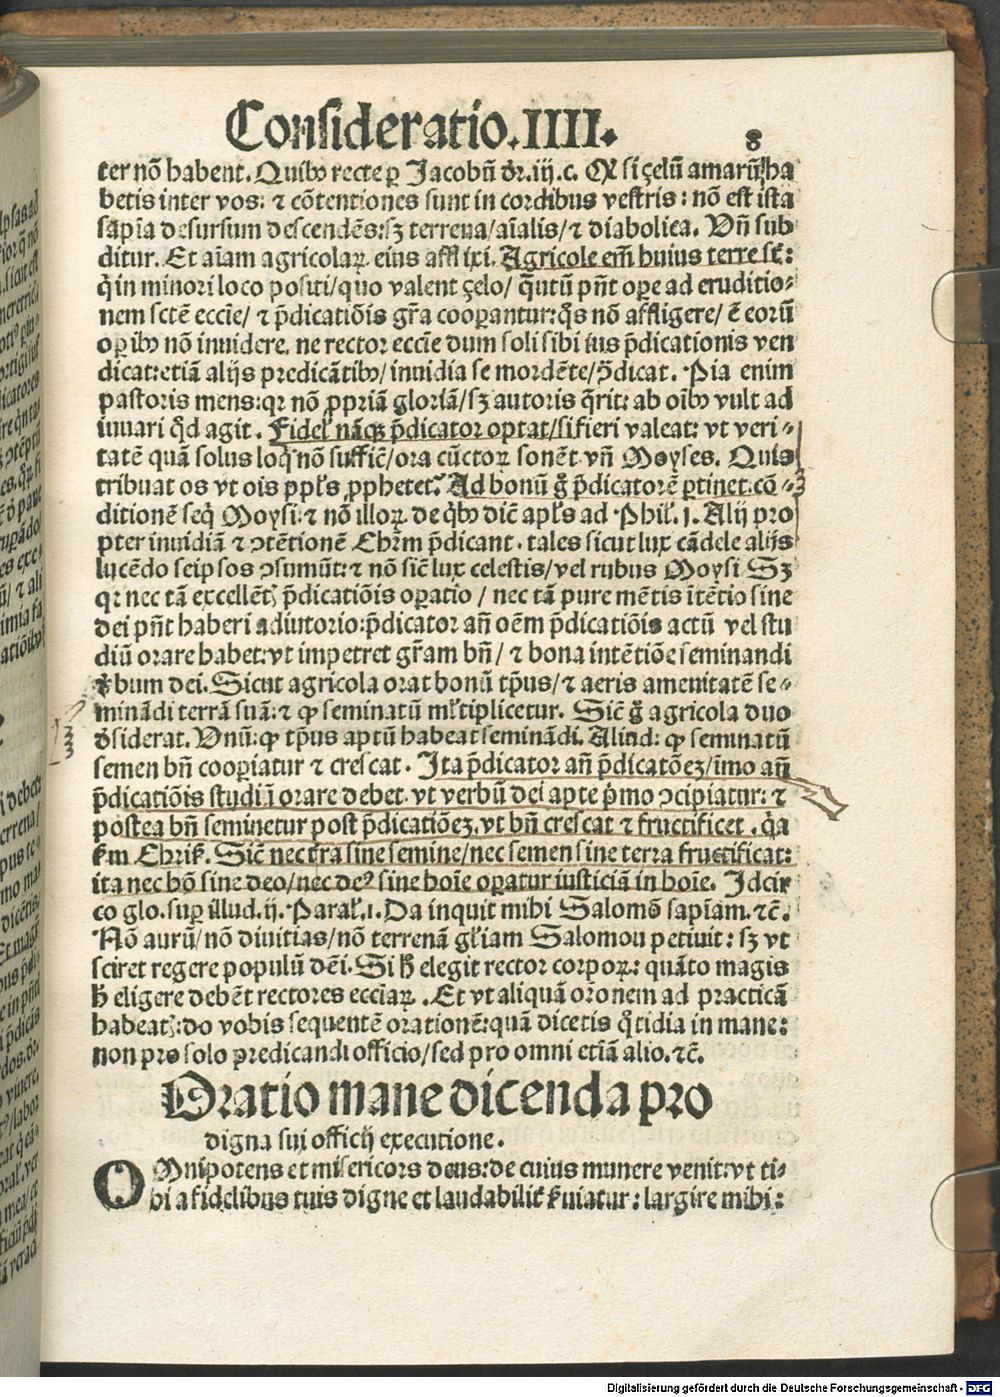 Consideratio.IIII.
8
ter nō habent. Quibꝰ recte ꝑ Jacobū dr̄.iij.c. Ꝙ si çelū amarū ha
betis inter vos: ⁊ cōtentiones sunt in cordibus vestris: nō est ista
sapīa desursum descendēs: sꝫ terrena/aīalis/⁊ diabolica. Vn̄ sub
ditur. Et aīam agricolaꝝ eius afflixi. Agricole em̄ huius terre st̄:
q̄ in minori loco positi/quo valent çelo/ q̄ntū pn̄t oꝑe ad eruditio-
nem sctē eccīe/ ⁊ p̄dicatiōis gr̄a cooꝑantur: q̄s nō affligere/ ē eorū
oꝑibꝰ nō inuidere. ne rector eccīe dum soli sibi ius p̄dicationis ven
dicat: etiā alijs predicātibꝰ/ inuidia se mordēte/ p̄dicat. Pia enim
pastoris mens: qꝛ nō ꝓpriā gloriā/ sꝫ autoris q̄rit: ab oībꝰ vult ad
iuuari qd̄ agit. Fidel' nāqꝫ p̄dicator optat/ si fieri valeat: vt veri-
tatē quā solus loq̄ nō sufficē/ ora cūctoꝝ sonēt vn̄ Moyses. Quis
tribuat os vt oīs ppl's ꝓphetet? Ad bonū g̊ p̄dicatorē ꝑtinet cō-
ditionē seq̄ Moysi: ⁊ nō illoꝝ de qbꝰ dic̄ apl's ad Phil'.j. Alij pro
pter inuidiā ⁊ ꝯtētionē Chr̄m p̄dicant. tales sicut lux cādele alijs
lucēdo seipsos ꝯsumūt: ⁊ nō sic̄ lux celestis/ vel rubus Moysi Sꝫ
qꝛ nec tā excellētꝭ p̄dicatiōis oꝑatio/ nec tā pure mētis ītētio sine
dei pn̄t haberi adiutorio: p̄dicator an̄ oēm p̄dicatiōis actū vel stu
diū orare habet: vt impetret gr̄am bn̄/ ⁊ bona intētiōe seminandi
v̄bum dei. Sicut agricola orat bonū tp̄us/ ⁊ aeris amenitatē se-
mināndi terrā suā: ⁊ ꝙ seminatū ml'tiplicetur. Sic̄ g̊ agricola duo
d̄siderat. Vnū: ꝙ tp̄us aptū habeat seminādi. Aliud: ꝙ seminatū
semen bn̄ cooꝑiatur ⁊ crescat. Ita p̄dicator an̄ p̄dicatōeꝫ/ īmo an̄
p̄dicatiōis studiū orare debet. vt verbū dei apte p̄mo ꝯcipiatur: ⁊
postea bn̄ seminetur post p̄dicatiōeꝫ. vt bn̄ crescat ⁊ fructificet. q̄a
fm̄ Chris̄. Sic̄ nec tr̄a sine semine/ nec semen sine terra fructificat:
ita nec hō sine deo/ nec deꝰ sine hoīe oꝑatur iusticiā in hoīe. Idcir
co glo. suꝑ illud.ij. Paral'.i. Da inquit mihi Salomō sapīam.⁊c̄.
Nō aurū/ nō diuitias/ nō terrenā gl'iam Salomon petiuit: sꝫ vt
sciret regere populū dei. Si h̄ elegit rector corpoꝝ: quāto magis
h̄ eligere debēt rectores eccīaꝝ. Et vt aliquā or̄onem ad practicā
habeatꝭ: do vobis sequentē orationē: quā dicetis q̄tidia in mane:
non pro solo predicandi officio/ sed pro omni etiā alio.⁊c̄.
Oratio mane dicenda pro
digna sui officij executione.
OMnipotens et misericors deus: de cuius munere venit: vt ti-
bi a fidelibus tuis digne et laudabilit̄ s̄uiatur: largire mihi:
Digitalisierung gefördert durch die Deutsche Forschungsgemeinschaft - DFG